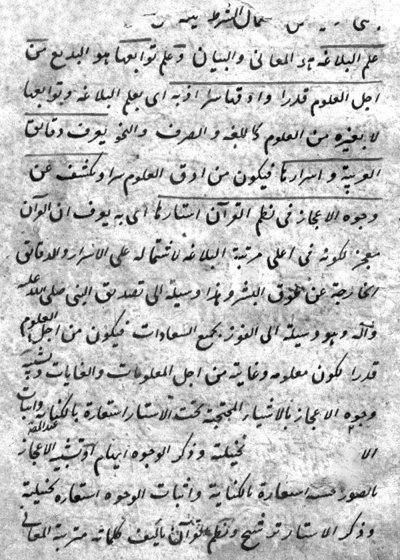 علم البلاغة هو المعاني والبيان وعلم توابعها هو البديع من
اجل العلوم قدرا وادقها سرا اذ به اي بعلم البلاغة وتوابعها
لا بغيره من العلوم كاللغة والصرف والنحو يعرف دقايق
العربية واسرارها فيكون من ادق العلوم سرا ويكشف عن
وجوه الاعجاز في نظم القرآن استارها اي به يعرف ان القرآن
معجز لكونه في اعلى مرتبة البلاغة لاشتماله على الاسرار والدقائق
الخارجة عن طوق البشر وهذا وسيلة الى تصديق النبي صلى الله عليه
وآله وهو وسيلة الى الفوز بجميع السعادات فيكون من اجل العلوم
قدرا لكون معلومه وغايته من اجل المعلومات والغايات وتشبيه
وجوه الاعجاز بالاشياء المحتجبة تحت الاستار استعارة بالكناية واثبات
الا تخييلية وذكر الوجوه ايهام او تشبيه الاعجاز
بالصور استعارة بالكناية واثبات الوجوه استعارة تخييلية
وذكر الاستار ترشيح ونظم القرآن تأليف كلماته مترتبة المعاني